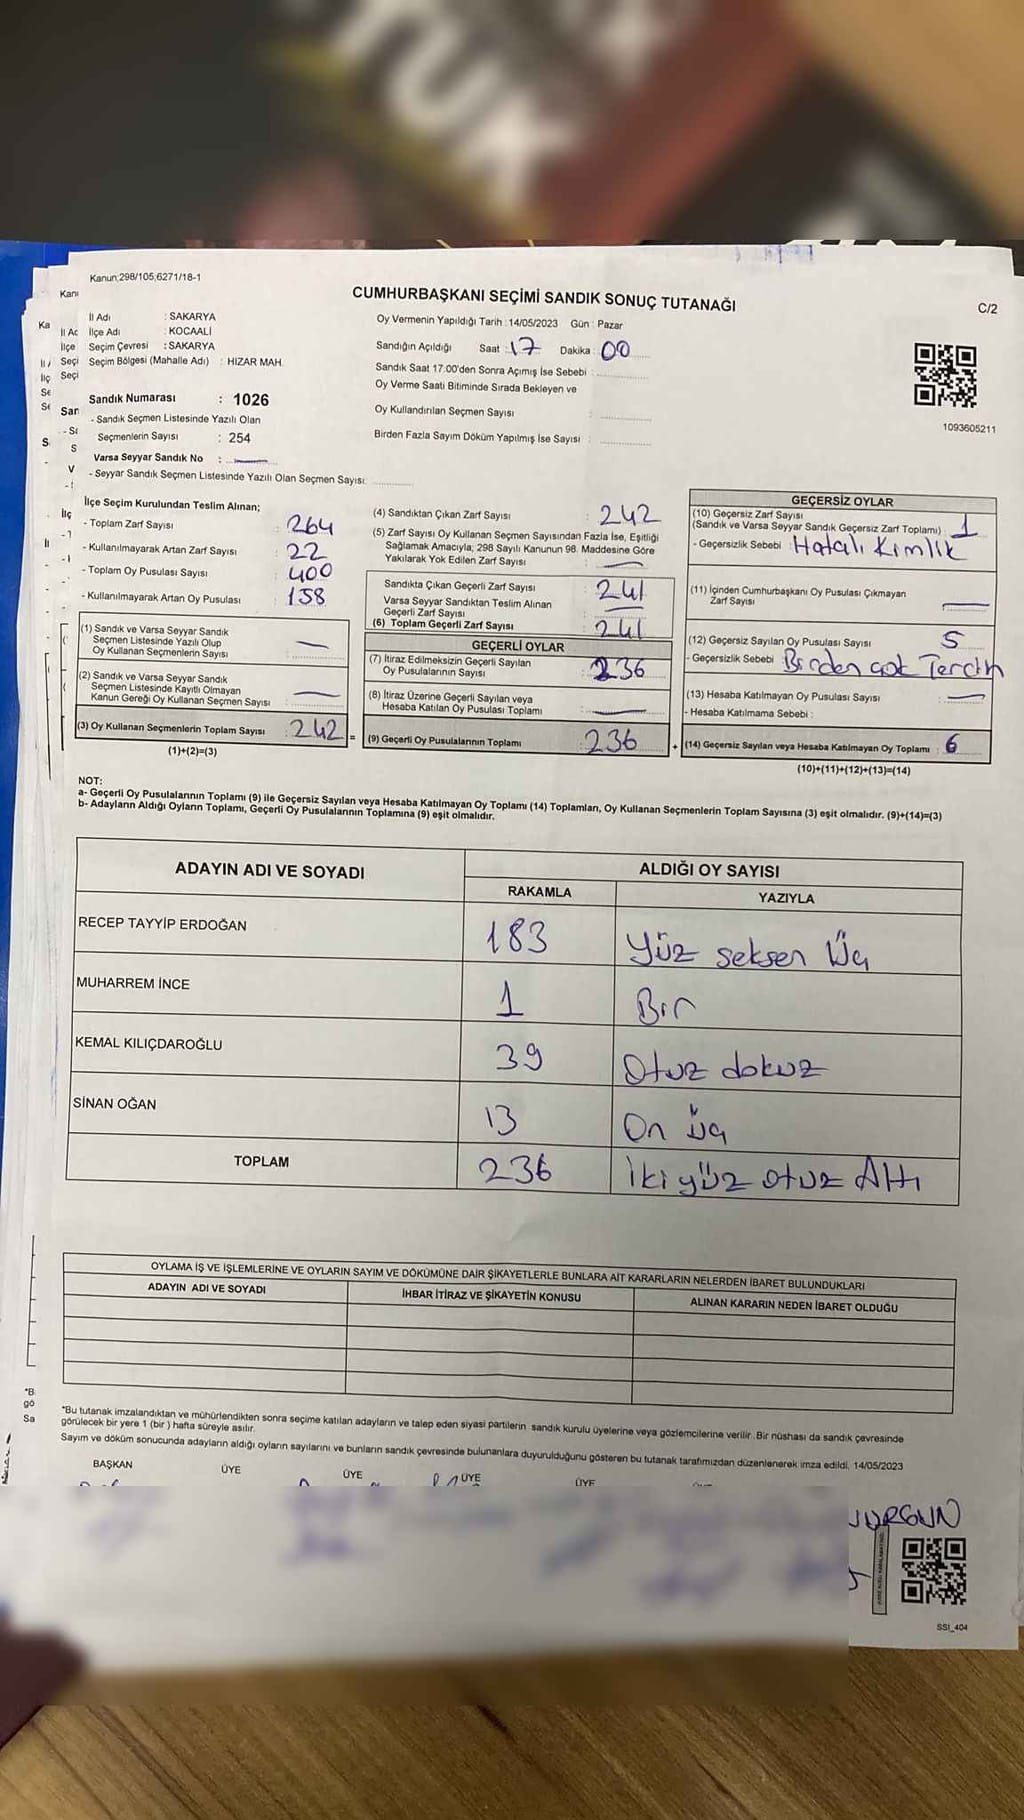 TUK
Kanun;298/105,6271/18-1
CUMHURBAŞKANI SEÇİMİ SANDIK SONUÇ TUTANAĞI
C/2
İl Adı : SAKARYA
İlçe Adı : KOCAALİ
Seçim Çevresi : SAKARYA
Seçim Bölgesi (Mahalle Adı) : HIZAR MAH.
Sandık Numarası : 1026
- Sandık Seçmen Listesinde Yazılı Olan
Seçmenlerin Sayısı : 254
Varsa Seyyar Sandık No :
- Seyyar Sandık Seçmen Listesinde Yazılı Olan Seçmen Sayısı:
Oy Vermenin Yapıldığı Tarih :14/05/2023 Gün : Pazar
Sandığın Açıldığı Saat : 17 Dakika : 00
Sandık Saat 17:00'den Sonra Açımış İse Sebebi :
Oy Verme Saati Bitiminde Sırada Bekleyen ve
Oy Kullandırılan Seçmen Sayısı :
Birden Fazla Sayım Döküm Yapılmış İse Sayısı :
1093605211
İlçe Seçim Kurulundan Teslim Alınan;
- Toplam Zarf Sayısı : 264
- Kullanılmayarak Artan Zarf Sayısı : 22
- Toplam Oy Pusulası Sayısı : 400
- Kullanılmayarak Artan Oy Pusulası : 158
(1) Sandık ve Varsa Seyyar Sandık
Seçmen Listesinde Yazılı Olup
Oy Kullanan Seçmenlerin Sayısı : —
(2) Sandık ve Varsa Seyyar Sandık
Seçmen Listesinde Kayıtlı Olmayan
Kanun Gereği Oy Kullanan Seçmen Sayısı : —
(3) Oy Kullanan Seçmenlerin Toplam Sayısı : 242 =
(1)+(2)=(3)
(4) Sandıktan Çıkan Zarf Sayısı : 242
(5) Zarf Sayısı Oy Kullanan Seçmen Sayısından Fazla İse, Eşitliği
Sağlamak Amacıyla; 298 Sayılı Kanunun 98. Maddesine Göre
Yakılarak Yok Edilen Zarf Sayısı : —
Sandıkta Çıkan Geçerli Zarf Sayısı : 241
Varsa Seyyar Sandıktan Teslim Alınan
Geçerli Zarf Sayısı : —
(6) Toplam Geçerli Zarf Sayısı : 241
GEÇERLİ OYLAR
(7) İtiraz Edilmeksizin Geçerli Sayılan
Oy Pusulalarının Sayısı : 236
(8) İtiraz Üzerine Geçerli Sayılan veya
Hesaba Katılan Oy Pusulası Toplamı : —
(9) Geçerli Oy Pusulalarının Toplamı : 236 +
GEÇERSİZ OYLAR
(10) Geçersiz Zarf Sayısı
(Sandık ve Varsa Seyyar Sandık Geçersiz Zarf Toplamı) : 1
- Geçersizlik Sebebi : Hatalı Kimlik
(11) İçinden Cumhurbaşkanı Oy Pusulası Çıkmayan
Zarf Sayısı : —
(12) Geçersiz Sayılan Oy Pusulası Sayısı : 5
- Geçersizlik Sebebi : Birden çok Tercih
(13) Hesaba Katılmayan Oy Pusulası Sayısı : —
- Hesaba Katılmama Sebebi :
(14) Geçersiz Sayılan veya Hesaba Katılmayan Oy Toplamı : 6
(10)+(11)+(12)+(13)=(14)
NOT:
a- Geçerli Oy Pusulalarının Toplamı (9) ile Geçersiz Sayılan veya Hesaba Katılmayan Oy Toplamı (14) Toplamları, Oy Kullanan Seçmenlerin Toplam Sayısına (3) eşit olmalıdır. (9)+(14)=(3)
b- Adayların Aldığı Oyların Toplamı, Geçerli Oy Pusulalarının Toplamına (9) eşit olmalıdır.
ADAYIN ADI VE SOYADI ALDIĞI OY SAYISI
RAKAMLA YAZIYLA
RECEP TAYYİP ERDOĞAN 183 Yüz seksen Üç
MUHARREM İNCE 1 Bir
KEMAL KILIÇDAROĞLU 39 Otuz dokuz
SİNAN OĞAN 13 On üç
TOPLAM 236 İki yüz otuz Altı
OYLAMA İŞ VE İŞLEMLERİNE VE OYLARIN SAYIM VE DÖKÜMÜNE DAİR ŞİKAYETLERLE BUNLARA AİT KARARLARIN NELERDEN İBARET BULUNDUKLARI
ADAYIN ADI VE SOYADI İHBAR İTİRAZ VE ŞİKAYETİN KONUSU ALINAN KARARIN NEDEN İBARET OLDUĞU
*Bu tutanak imzalandıktan ve mühürlendikten sonra seçime katılan adayların ve talep eden siyasi partilerin sandık kurulu üyelerine veya gözlemcilerine verilir. Bir nüshası da sandık çevresinde
görülecek bir yere 1 (bir ) hafta süreyle asılır.
Sayım ve döküm sonucunda adayların aldığı oyların sayılarını ve bunların sandık çevresinde bulunanlara duyurulduğunu gösteren bu tutanak tarafımızdan düzenlenerek imza edildi. 14/05/2023
BAŞKAN ÜYE ÜYE ÜYE ÜYE
SSI_404